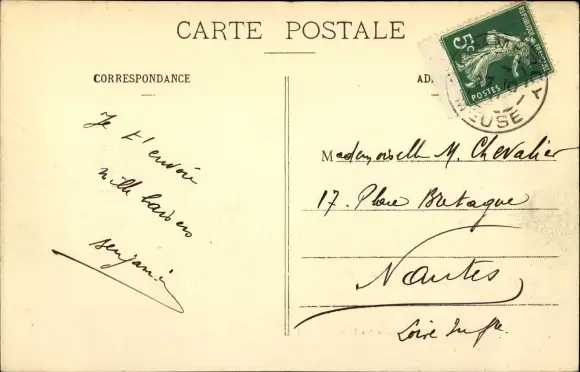 CARTE POSTALE
CORRESPONDANCE
Je t'envoie
mille baisers
Benjamin
RÉPUBLIQUE FRANÇAISE
5c
POSTES
MEUSE
Mademoiselle M. Chevalier
17. Place Bretagne
Nantes
Loire Infre.